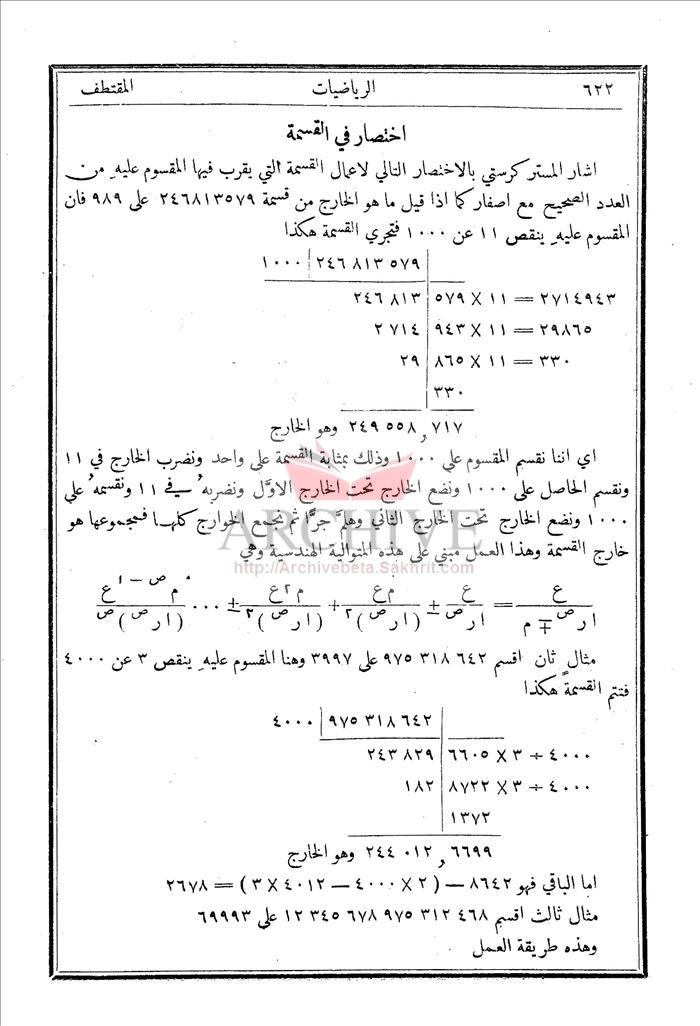 ٦٢٢ الرياضيات المقتطف
اختصار في القسمة
اشار المستر كرستي بالاختصار التالي لاعمال القسمة التي يقرب فيها المقسوم عليهِ من
العدد الصحيح مع اصفار كما اذا قيل ما هو الخارج من قسمة ٢٤٦٨١٣٥٧٩ على ٩٨٩ فان
المقسوم عليهِ ينقص ١١ عن ١٠٠٠ فتجري القسمة هكذا
١٠٠٠ | ٢٤٦ ٨١٣ ٥٧٩
٢٤٦ ٨١٣ | ٥٧٩ × ١١ = ٢٧١٤٩٤٣
٢ ٧١٤ | ٩٤٣ × ١١ = ٢٩٨٦٥
٢٩ | ٨٦٥ × ١١ = ٣٣٠
٣٣٠
٢٤٩ ٥٥٨,٧١٧ وهو الخارج
اي اننا نقسم المقسوم على ١٠٠٠ وذلك بمثابة القسمة على واحد ونضرب الخارج في ١١
ونقسم الحاصل على ١٠٠٠ ونضع الخارج تحت الخارج الاوَّل ونضربهُ في ١١ ونقسمهُ على
١٠٠٠ ونضع الخارج تحت الخارج الثاني وهلمَّ جرًّا ثم نجمع الخوارج كلها فمجموعها هو
خارج القسمة وهذا العمل مبني على هذه المتوالية الهندسية وهي
ARCHIVE
http://Archivebeta.Sakhrit.com
ع / (١ر^ص ∓ م) = ع / ١ر^ص ± مع / (١ر^ص)^٢ + م^٢ع / (١ر^ص)^٣ ± ... م^(ص-١)ع / (١ر^ص)^ص
مثال ثان اقسم ٩٧٥ ٣١٨ ٦٤٢ على ٣٩٩٧ وهنا المقسوم عليهِ ينقص ٣ عن ٤٠٠٠
فتتم القسمة هكذا
٤٠٠٠ | ٩٧٥ ٣١٨ ٦٤٢
٢٤٣ ٨٢٩ | ٦٦٠٥ × ٣ ÷ ٤٠٠٠
١٨٢ | ٨٧٢٢ × ٣ ÷ ٤٠٠٠
١٣٧٢
٢٤٤ ٠١٢,٦٦٩٩ وهو الخارج
اما الباقي فهو ٨٦٤٢ — (٢ × ٤٠٠٠ — ٤٠١٢ × ٣) = ٢٦٧٨
مثال ثالث اقسم ١٢ ٣٤٥ ٦٧٨ ٩٧٥ ٣١٢ ٤٦٨ على ٦٩٩٩٣
وهذه طريقة العمل